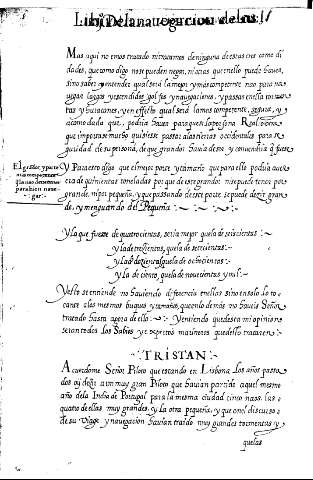 Lib. I De la nauegacion de los
Mas aqui no emos tratado ni tratamos de ninguna de estas cosas como di
dades, que como digo no se pueden negar, ni otras que en ello puede hauer,
sino saber y entender qual sera la mejor y mas competente nao para na
uegar largos y estendidos golfos y nauegaciones, y passar en ella muchas
y en effecto qual sera la mas competente, segura, y
acomodada que, podria hauer para que en la persona Real
que importase mucho quisiesse passar a las tierras occidentales para se
guridad de su persona, de que grandor hauia de ser, y conuendria q̃ fuese
El grosor y parte
mas competente
para bien naue
gar:
Y Para esto digo que el mejor porte y tamaño que para ello podria auer
es de quinientas toneladas por que de este grandor ni se puede tener por
grande, ni por pequeña, y que passando de este porte se puede dezir gran
de, y menguando del Pequeña :~
Y la que fuese de quatrocientas, seria mejor que la de seiscientas :~
y la de trezientas, que la de setecientas :~
y la de dozientas que la de ochocientas :~
y la de ciento, que la de nouecientas y mil :~
Y esto se entiende no hauiendo diferencia en ellas sino en solo lo to
cante a los mesmos buques y tamaño, que en lo demas no hauia Señor
tratado hasta agora de ello :~ Y entiendo que de esta mi opinion
seran todos los Sabios y expertos marineros que de ello trataren :~
TRISTAN :~
Acuerdome Señor Piloto que estando en Lisbona los años passa
dos oy dezir a vn muy gran Piloto que hauian partido aquel mesmo
año de la India de Portugal para la mesma ciudad cinco naos, las
quatro de ellas muy grandes, y la otra pequeña, y que en el discurso
de su Viage y nauegacion hauian traido muy grandes tormentas y
que las